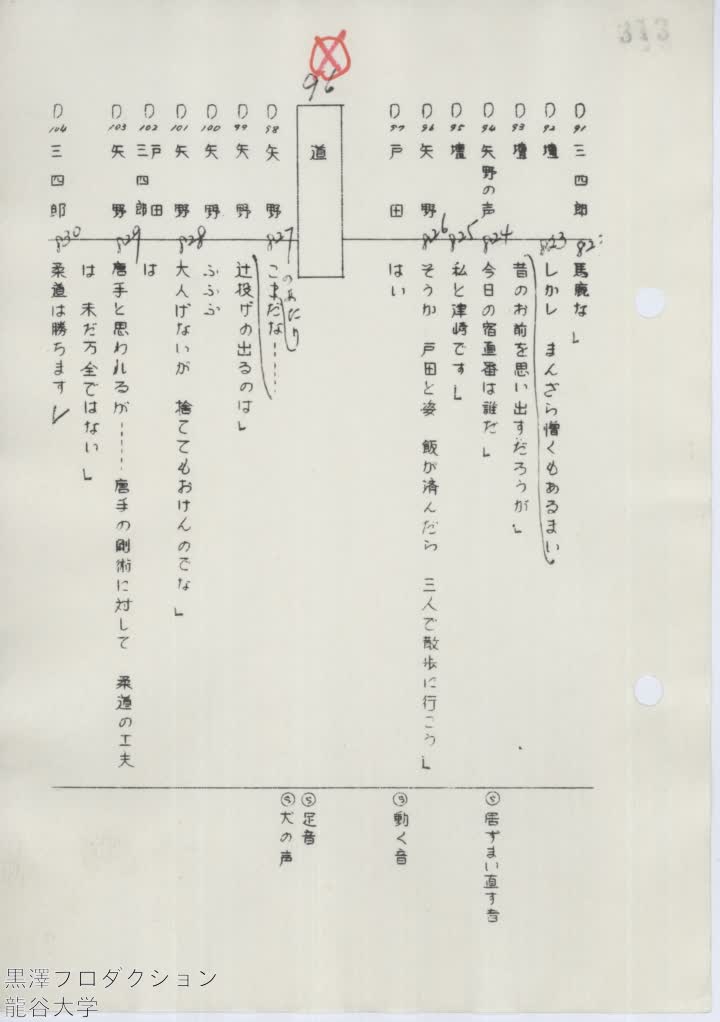 313
D91 三四郎 馬鹿な」
D92 壇 p23 しかし まんざら憎くもあるまい
D93 壇 昔のお前を思い出すだろうが」
D94 矢野の声 p24 今日の宿直番は誰だ」
D95 壇 p25 私と津崎です」
D96 矢野 p26 そうか 戸田と姿 飯が済んだら 三人で散歩に行こう」
D97 戸田 はい
96
道
D98 矢野 p27 こまだな……
のあたり
D99 矢野 辻投げの出るのは」
D100 矢野 ふふふ
D101 矢野 p28 大人げないが 捨ててもおけんのでな」
D102 戸田 三四郎 は
D103 矢野 p29 唐手と思われるが……唐手の剛術に対して 柔道の工夫
は 未だ万全ではない」
D104 三四郎 p30 柔道は勝ちます」
Ⓢ 居ずまい直す音
Ⓢ 動く音
Ⓢ 足音
Ⓢ 犬の声
黒澤フロダクション
龍谷大学